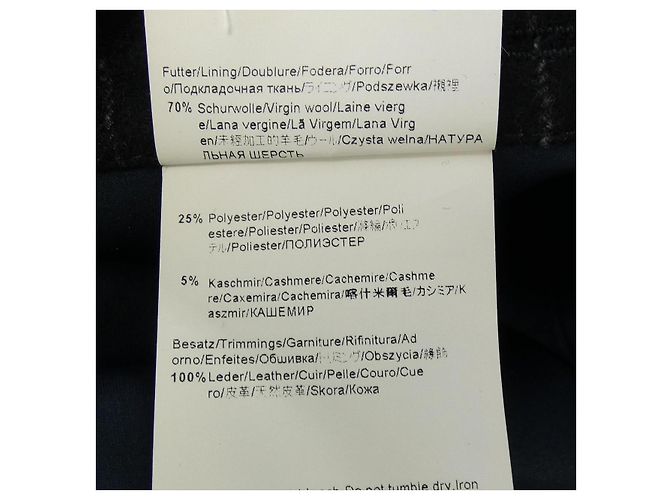 Futter/Lining/Doublure/Fodera/Forro/Forr
o/Подкладочная ткань/ライニング/Podszewka/襯裡
70% Schurwolle/Virgin wool/Laine vierg
e/Lana vergine/Lã Virgem/Lana Virg
en/未經加工的羊毛/ウール/Czysta wełna/НАТУРА
ЛЬНАЯ ШЕРСТЬ
25% Polyester/Polyester/Polyester/Poli
estere/Poliester/Poliester/滌綸/ポリエス
テル/Poliester/ПОЛИЭСТЕР
5% Kaschmir/Cashmere/Cachemire/Cashme
re/Caxemira/Cachemira/喀什米爾毛/カシミア/K
aszmir/КАШЕМИР
Besatz/Trimmings/Garniture/Rifinitura/Ad
orno/Enfeites/Обшивка/トリミング/Obszycia/縫飾
100% Leder/Leather/Cuir/Pelle/Couro/Cue
ro/皮革/天然皮革/Skora/Кожа
Do not tumble dry.Iron